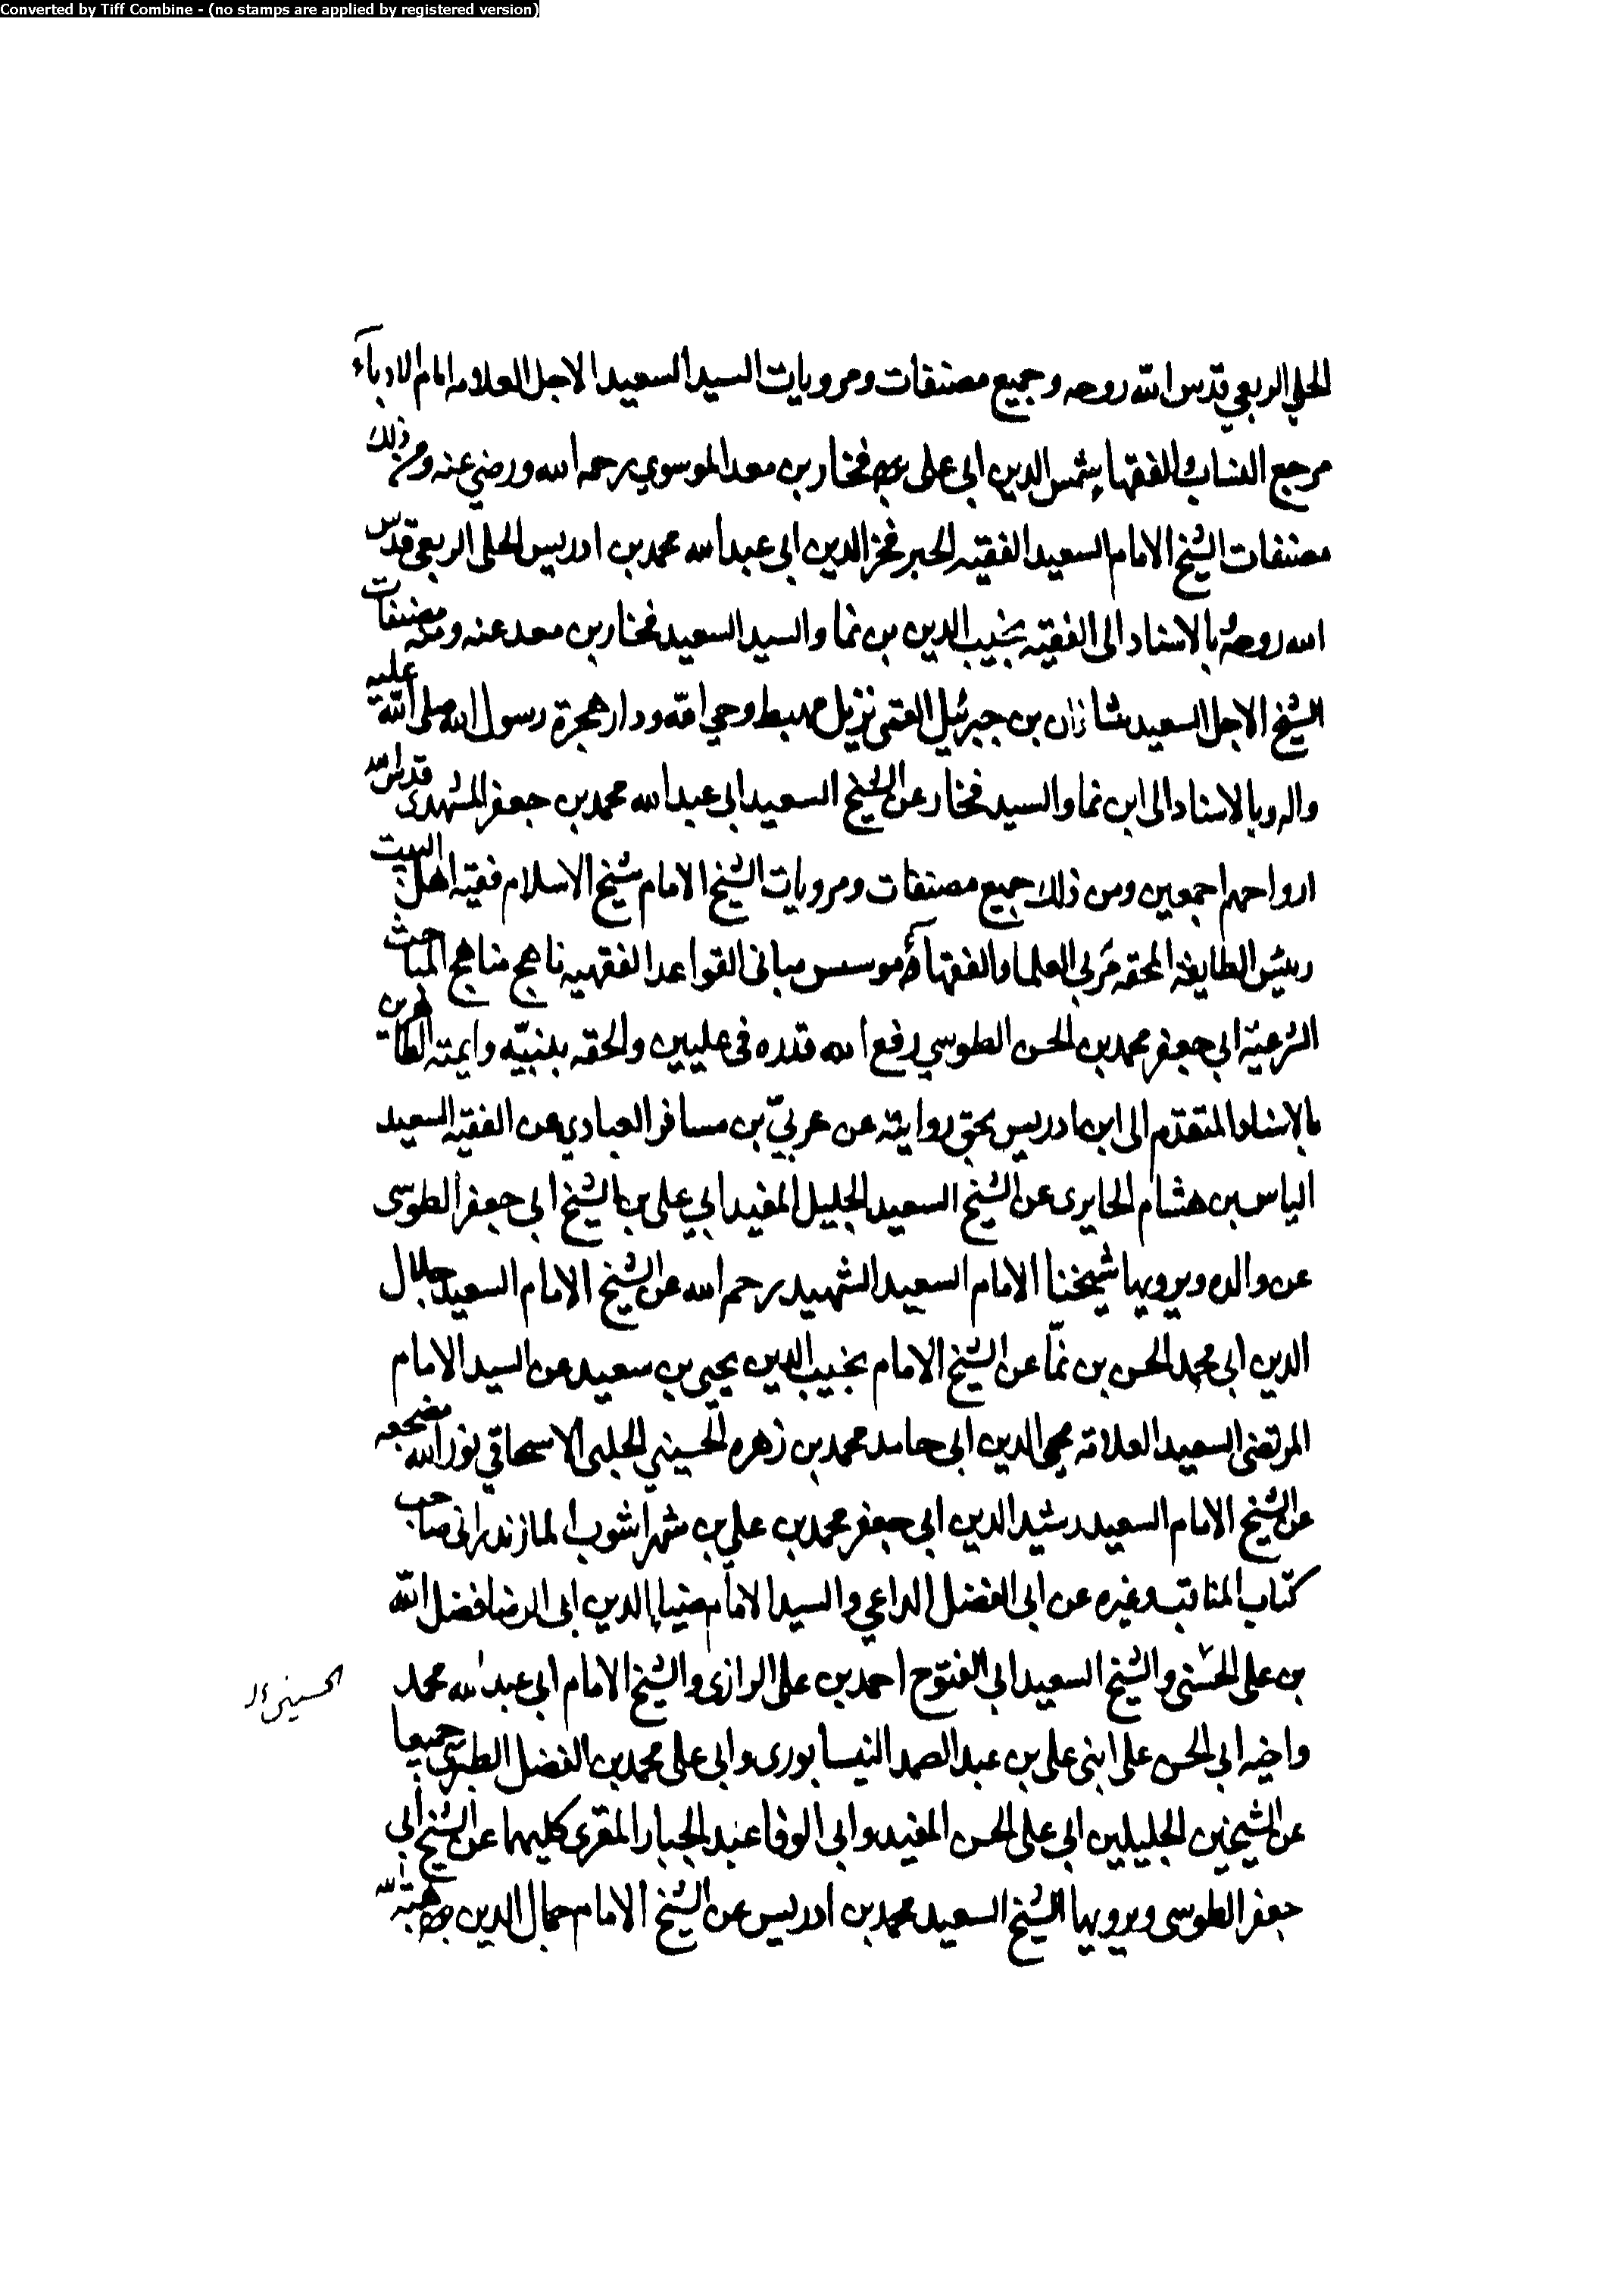 Converted by Tiff Combine - (no stamps are applied by registered version)
الحلي الربعي قدس الله روحه وجميع مصنفات ومرويات السيد السعيد الاجل العلامه امام الادباء
مرجع النساب والفقها شمس الدين ابي علي فخار بن معد الموسوي رحمه الله ورضي عنه ومن ذلك
مصنفات الشيخ الامام السعيد الفقيه الحبر فخر الدين ابي عبد الله محمد بن ادريس الحلى الربعي قدس
الله روحه بالاسناد الى الفقيه نجيب الدين بن نما والسيد السعيد فخار بن معد عنه ومنه مصنفات
الشيخ الاجل السعيد شاذان بن جبرئيل القمى نزيل مهبط وحي الله ودار هجرة رسول الله صلى الله عليه
واله وبالاسناد الى ابن نما والسيد فخار عن الشيخ السعيد ابى عبد الله محمد بن جعفر المشهدى قدس الله
ارواحهم اجمعين ومن ذلك جميع مصنفات ومرويات الشيخ الامام شيخ الاسلام فقيه اهل البيت
رئيس الطايفة المحقه مربي العلما والفقهاء موسس مبانى القواعد الفقهيه ناهج مناهج المباحث
الشرعية ابي جعفر محمد بن الحسن الطوسي رفع الله قدره فى عليين والحقه بنبيّه وايمته الطاهرين
بالاسناد المتقدم الى ابن ادريس بحق روايته عن عربيّ بن مسافر العبادي عن الفقيه السعيد
الياس بن هشام الحايرى عن الشيخ السعيد الجليل المفيد ابي على بن الشيخ ابى جعفر الطوسى
عن والده ويرويها شيخنا الامام السعيد الشهيد رحمه الله عن الشيخ الامام السعيد جلال
الدين ابى محمد الحسن بن نمّا عن الشيخ الامام نجيب الدين يحيى بن سعيد عن السيد الامام
المرتضى السعيد العلامة محيى الدين ابى حامد محمد بن زهره الحسيني الحلبى الاسحاقي نور الله مضجعه
عن الشيخ الامام السعيد رشيد الدين ابى جعفر محمد بن علي بن شهراشوب المازندرانى صاحب
كتاب المناقب وغيره عن ابى الفضل الداعي والسيد الامام ضياء الدين ابى الرضا فضل الله
بن على الحسنى والشيخ السعيد ابي الفتوح احمد بن على الرازى والشيخ الامام ابى عبد الله محمد
الحسيني
واخيه ابى الحسن على ابنى على بن عبد الصمد النيسابورى وابى على محمد بن الفضل الطبرسى جميعا
عن الشيخين الجليلين ابى على الحسن المفيد وابى الوفا عبد الجبار المقرى كليهما عن الشيخ ابي
جعفر الطوسى ويرويها الشيخ السعيد محمد بن ادريس عن الشيخ الامام جمال الدين هبة الله